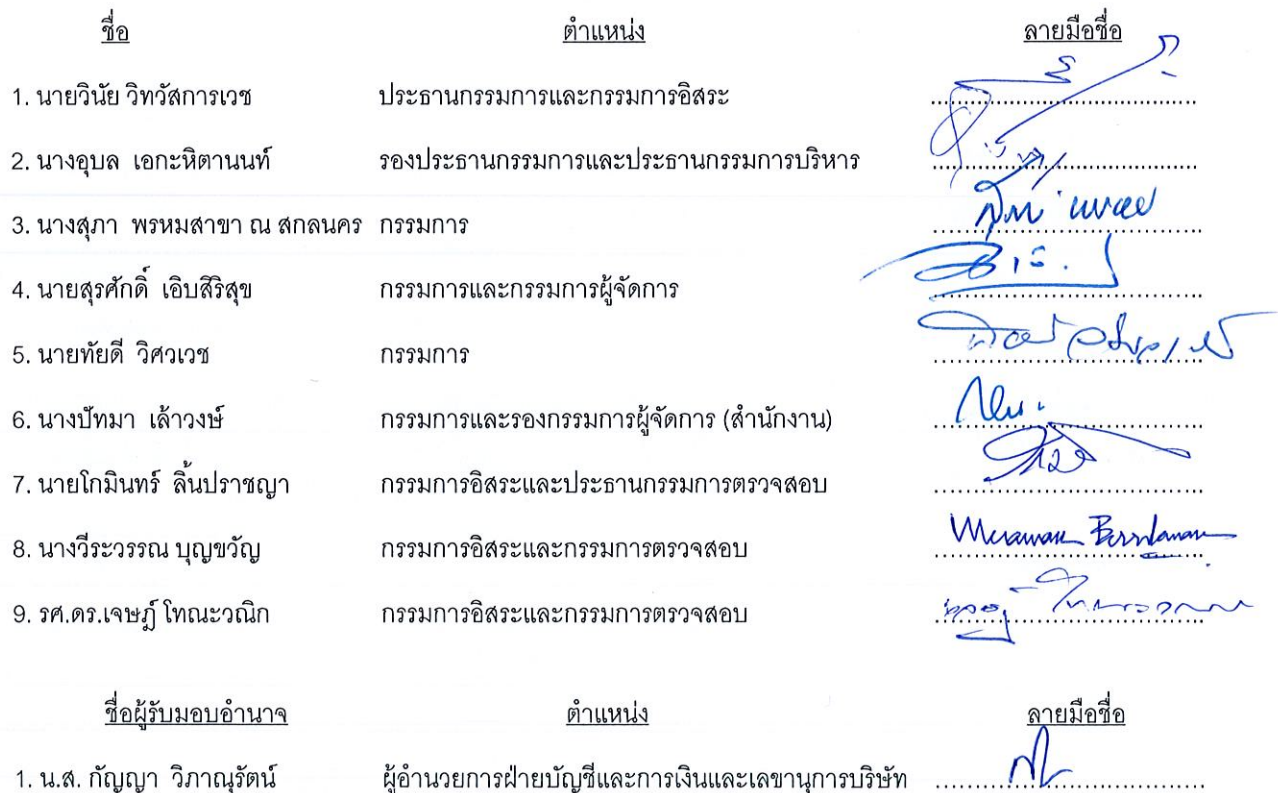 ชื่อ ตำแหน่ง ลายมือชื่อ
1. นายวินัย วิทวัสการเวช ประธานกรรมการและกรรมการอิสระ
2. นางอุบล เอกะหิตานนท์ รองประธานกรรมการและประธานกรรมการบริหาร
3. นางสุภา พรหมสาขา ณ สกลนคร กรรมการ
4. นายสุรศักดิ์ เอิบสิริสุข กรรมการและกรรมการผู้จัดการ
5. นายทัยดี วิศวเวช กรรมการ
6. นางปัทมา เล้าวงษ์ กรรมการและรองกรรมการผู้จัดการ (สำนักงาน)
7. นายโกมินทร์ ลิ้นปราชญา กรรมการอิสระและประธานกรรมการตรวจสอบ
8. นางวีระวรรณ บุญขวัญ กรรมการอิสระและกรรมการตรวจสอบ
9. รศ.ดร.เจษฎ์ โทณะวณิก กรรมการอิสระและกรรมการตรวจสอบ
ชื่อผู้รับมอบอำนาจ ตำแหน่ง ลายมือชื่อ
1. น.ส. กัญญา วิภาณุรัตน์ ผู้อำนวยการฝ่ายบัญชีและการเงินและเลขานุการบริษัท